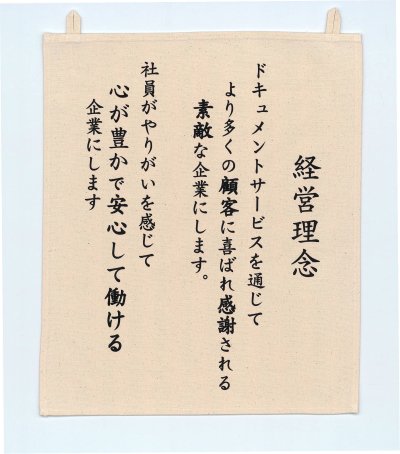 経営理念
ドキュメントサービスを通じて
より多くの顧客に喜ばれ感謝される
素敵な企業にします。
社員がやりがいを感じて
心が豊かで安心して働ける
企業にします